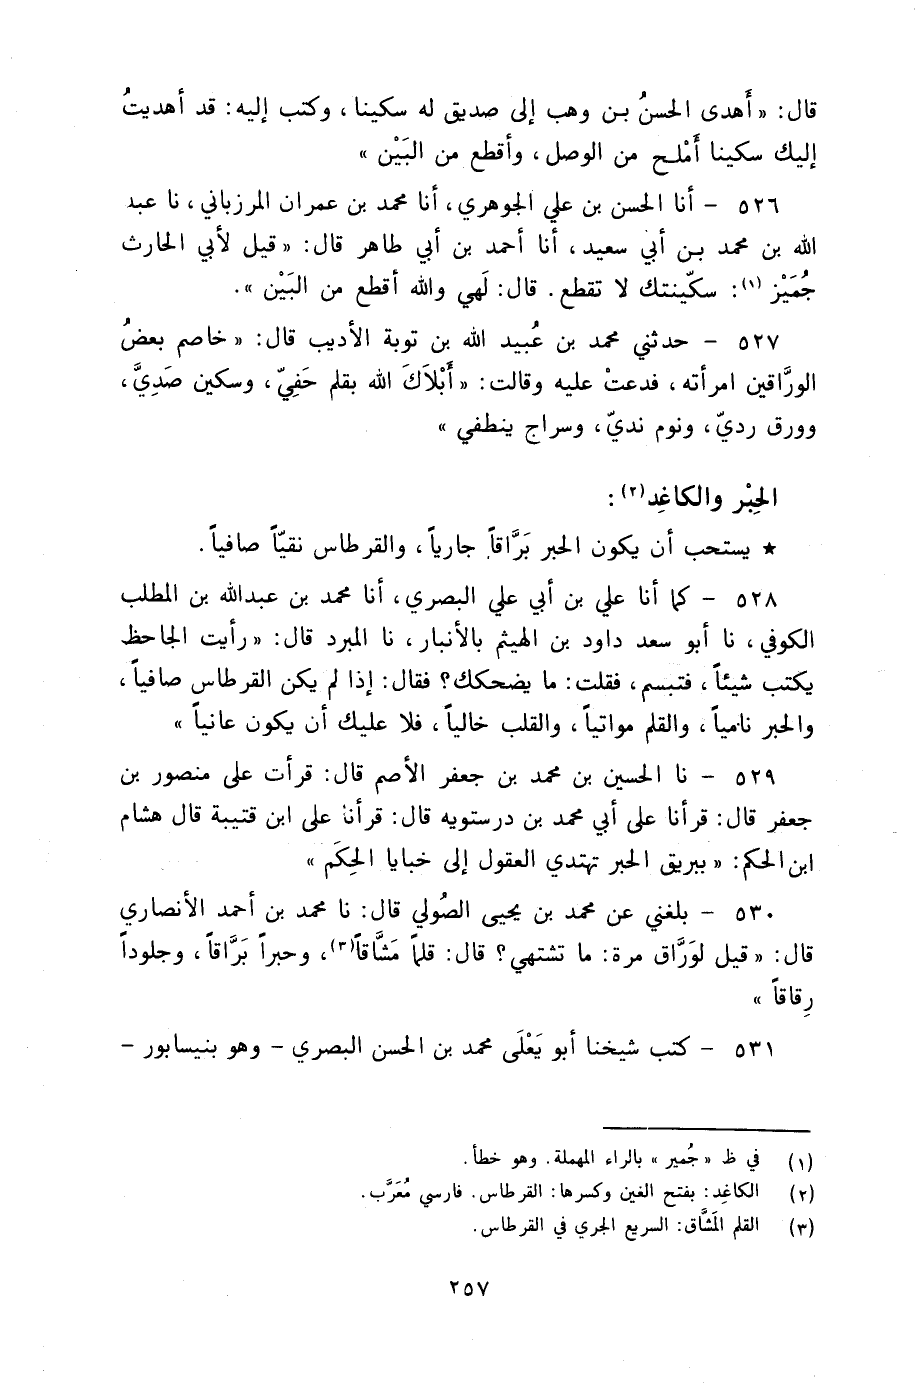 قال: « أَهدى الحسنُ بن وهب إلى صديق له سكينا ، وكتب إليه: قد أهديتُ
إليك سكينا أَمْلح من الوصل ، وأقطع من البَيْن »
٥٢٦ - أنا الحسن بن علي الجوهري ، أنا محمد بن عمران المرزباني ، نا عبد
الله بن محمد بن أبي سعيد ، أنا أحمد بن أبي طاهر قال: « قيل لأبي الحارث
جُمَيْز (١): سكّينتك لا تقطع . قال: لَهي والله أقطع من البَيْن » .
٥٢٧ - حدثني محمد بن عُبيد الله بن توبة الأديب قال: « خاصم بعضُ
الورَّاقين امرأته ، فدعتْ عليه وقالت: « أَبْلَاكَ الله بقلم حَفِيّ ، وسكين صَدِيَّ ،
وورق رديّ ، ونوم نديّ ، وسراج ينطفي »
الحِبْر والكاغِد (٢) :
★ يستحب أن يكون الحبر بَرَّاقاً جارياً ، والقرطاس نقيّاً صافياً .
٥٢٨ - كما أنا علي بن أبي علي البصري ، أنا محمد بن عبدالله بن المطلب
الكوفي ، نا أبو سعد داود بن الهيثم بالأنبار ، نا المبرد قال: « رأيت الجاحظ
يكتب شيئاً ، فتبسم ، فقلت: ما يضحكك؟ فقال: إذا لم يكن القرطاس صافياً ،
والحبر نامياً ، والقلم مواتياً ، والقلب خالياً ، فلا عليك أن يكون عانياً »
٥٢٩ - نا الحسين بن محمد بن جعفر الأصم قال: قرأت على منصور بن
جعفر قال: قرأنا على أبي محمد بن درستويه قال: قرأنا على ابن قتيبة قال هشام
ابن الحكم: « ببريق الحبر تهتدي العقول إلى خبايا الحِكَم »
٥٣٠ - بلغني عن محمد بن يحيى الصُولي قال: نا محمد بن أحمد الأنصاري
قال: « قيل لوَرَّاق مرة: ما تشتهي؟ قال: قلماً مَشَّاقاً (٣)، وحبراً بَرَّاقاً ، وجلوداً
رِقاقاً »
٥٣١ - كتب شيخنا أبو يَعْلَى محمد بن الحسن البصري - وهو بنيسابور -
(١) في ظ « جُمير » بالراء المهملة . وهو خطأ .
(٢) الكاغِد: بفتح الغين وكسرها: القرطاس . فارسي مُعَرَّب .
(٣) القلم المَشَّاق: السريع الجري في القرطاس .
٢٥٧